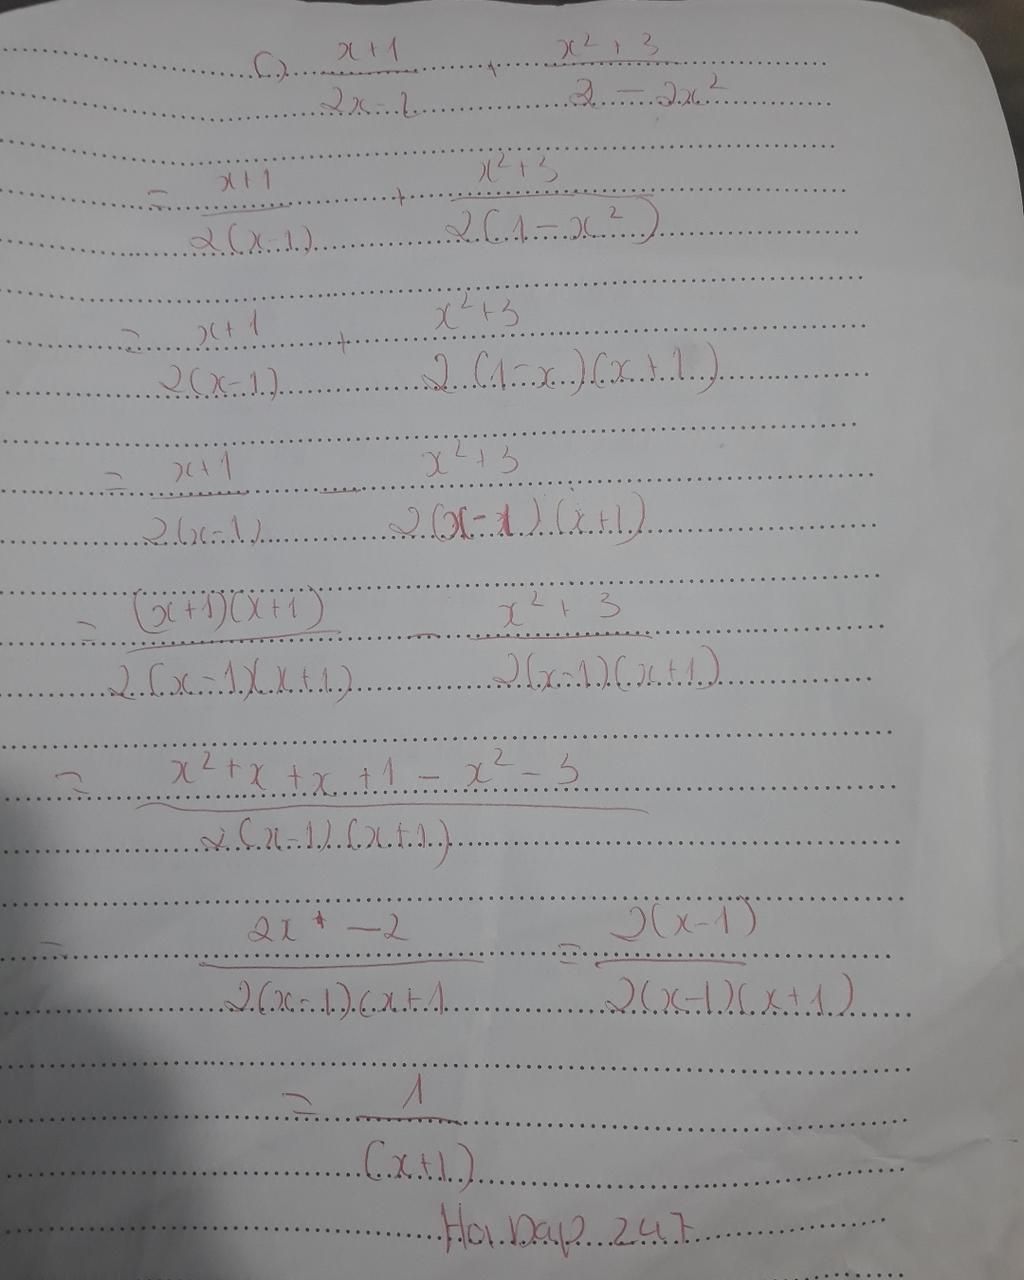 C) x+1 / 2x-2 + x² + 3 / 2 - 2x²
= x+1 / 2(x-1) + x²+3 / 2(1-x²)
= x+1 / 2(x-1) + x²+3 / 2(1-x)(x+1)
= x+1 / 2(x-1) - x²+3 / 2(x-1)(x+1)
= (x+1)(x+1) / 2(x-1)(x+1) - x² + 3 / 2(x-1)(x+1)
= x² + x + x + 1 - x² - 3 / 2(x-1)(x+1)
= 2x - 2 / 2(x-1)(x+1 = 2(x-1) / 2(x-1)(x+1)
= 1 / (x+1)
HoiDap247